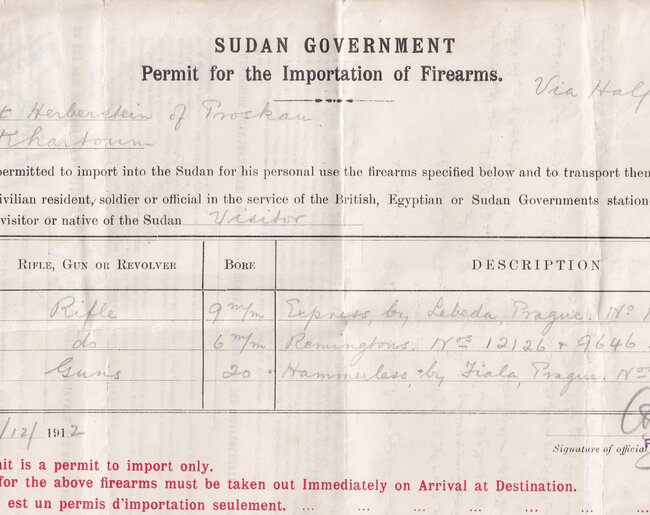 SUDAN GOVERNMENT
Permit for the Importation of Firearms.
Via Half
t Herberstein of Proskau
Khartoum
permitted to import into the Sudan for his personal use the firearms specified below and to transport them
ivilian resident, soldier or official in the service of the British, Egyptian or Sudan Governments station
visitor or native of the Sudan Visitor
RIFLE, GUN OR REVOLVER BORE DESCRIPTION
Rifle 9 m/m Express, by Lebeda, Prague. No
do 6 m/m Remingtons. Nos 12126 & 9646
Guns 20 " Hammerless, by Fiala, Prague. Nos
/12/ 1912
Signature of official
it is a permit to import only.
for the above firearms must be taken out Immediately on Arrival at Destination.
est un permis d'importation seulement. ... ... ... ... ... ...